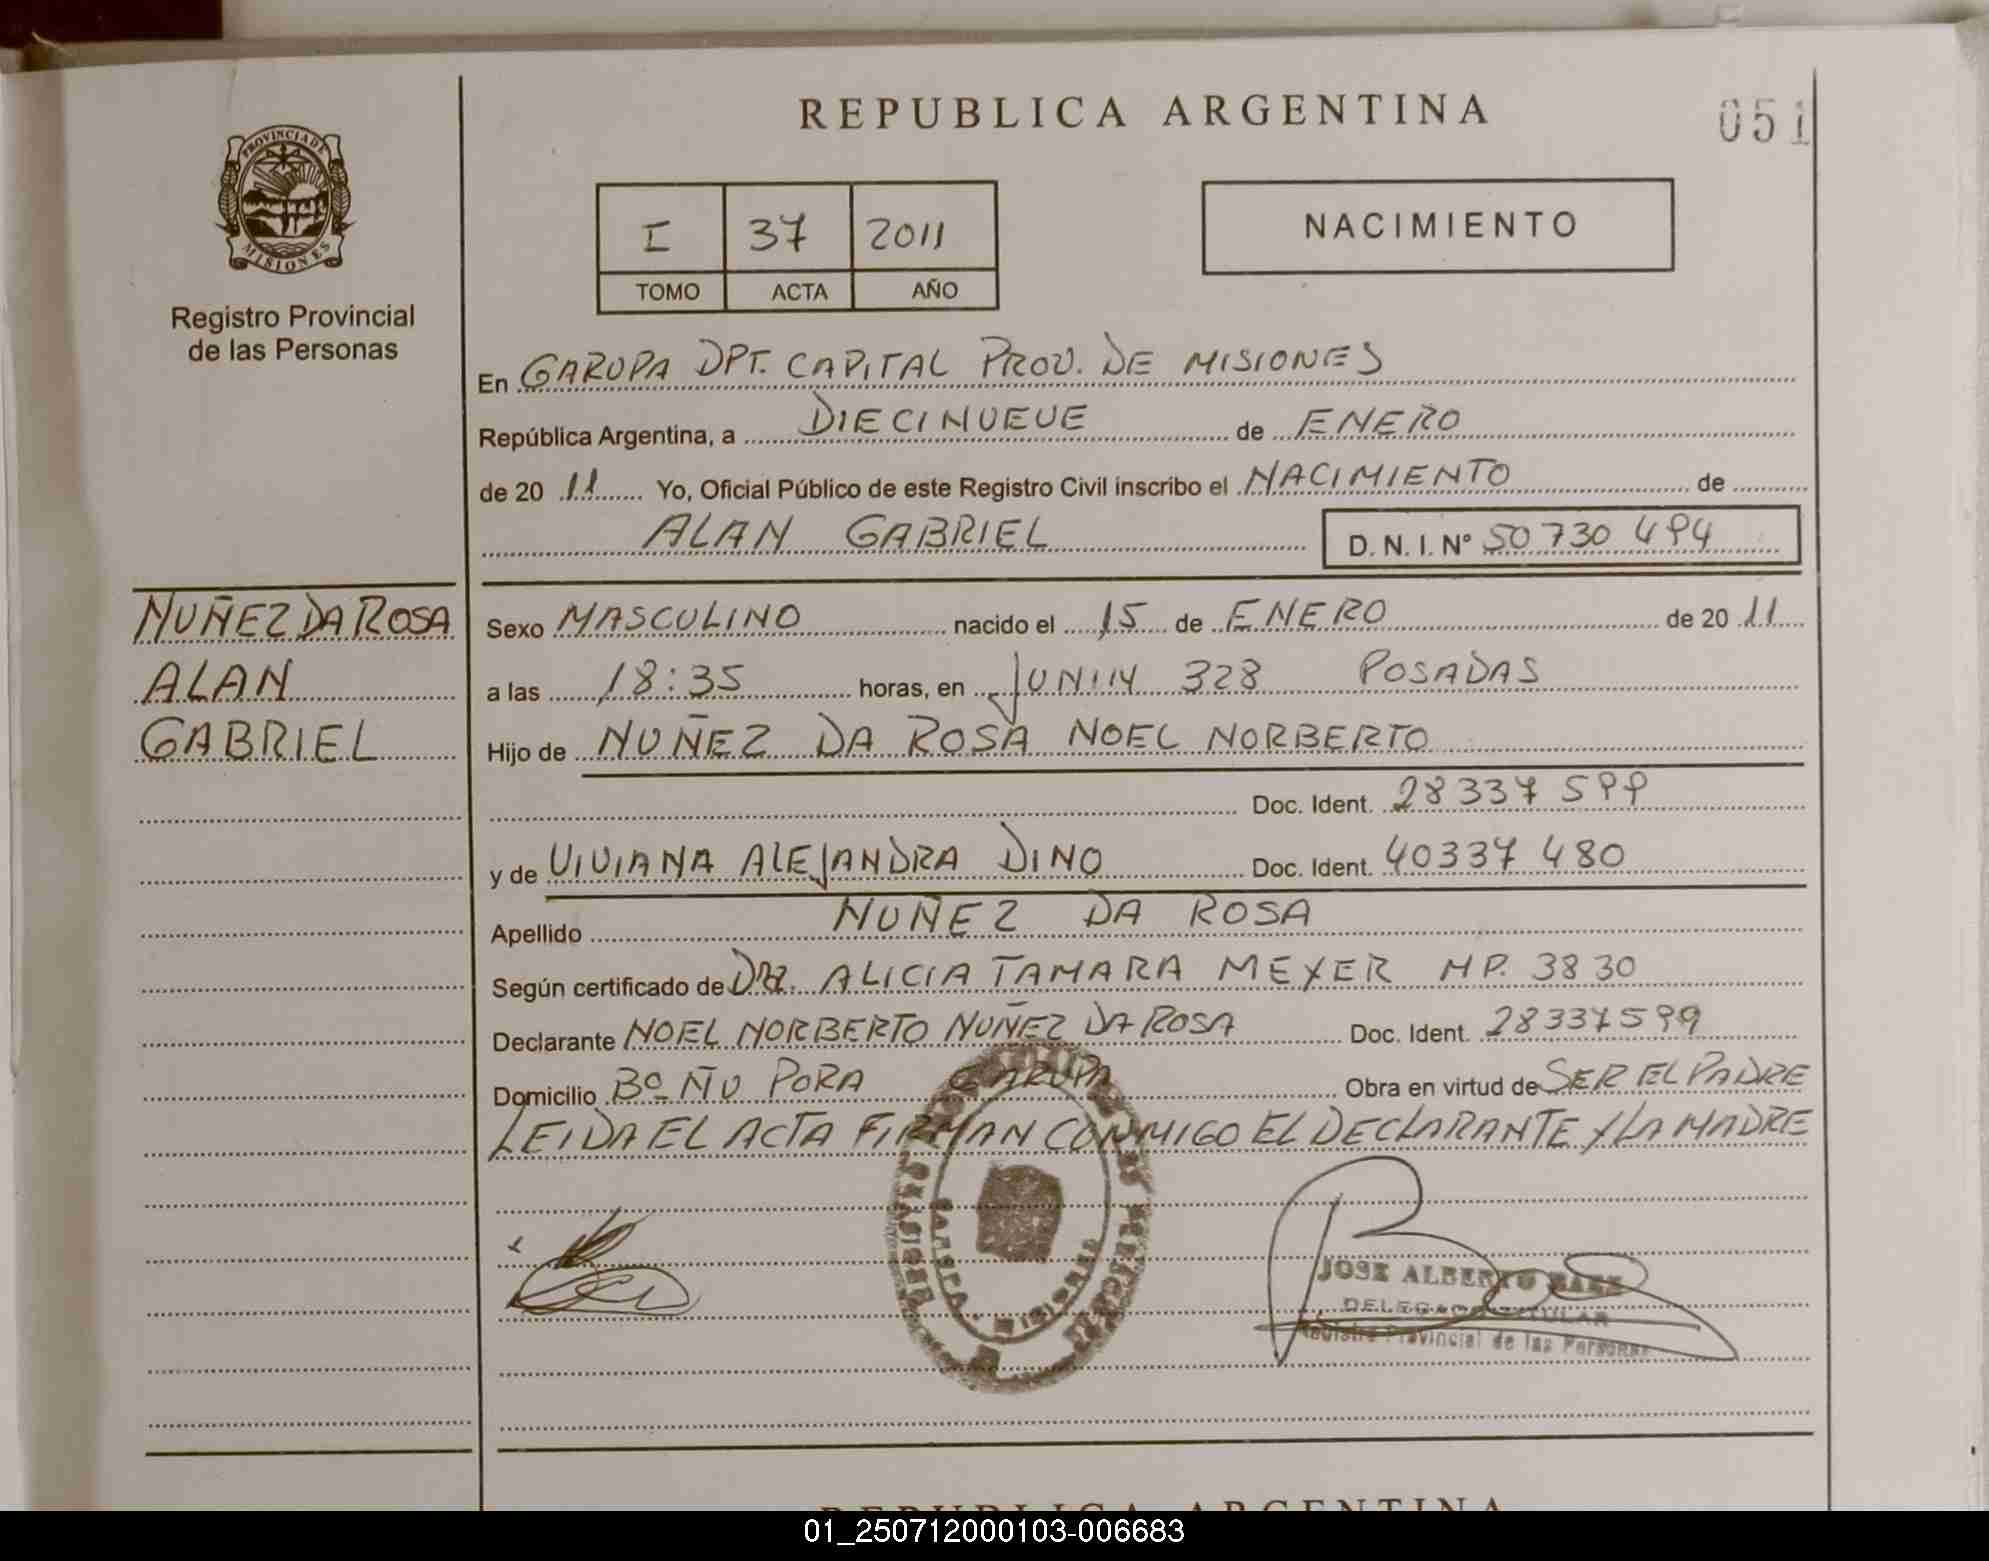 REPUBLICA ARGENTINA
051
PROVINCIA DE
MISIONES
Registro Provincial
de las Personas
I 37 2011
TOMO ACTA AÑO
NACIMIENTO
En GARUPA DPT. CAPITAL PROV. DE MISIONES
República Argentina, a DIECINUEVE de ENERO
de 20 11 Yo, Oficial Público de este Registro Civil inscribo el NACIMIENTO de
ALAN GABRIEL D. N. I. Nº 50 730 494
NUÑEZ DA ROSA
ALAN
GABRIEL
Sexo MASCULINO nacido el 15 de ENERO de 20 11
a las 18:35 horas, en 328 POSADAS
Hijo de NUÑEZ DA ROSA NOEL NORBERTO
Doc. Ident. 28 337 599
y de VIVIANA ALEJANDRA DINO Doc. Ident. 40337 480
Apellido NUÑEZ DA ROSA
Según certificado de DRA. ALICIA TAMARA MEYER MP. 3830
Declarante NOEL NORBERTO NUÑEZ DA ROSA Doc. Ident. 28337599
Domicilio Bº ÑU PORA GARUPA Obra en virtud de SER EL PADRE
LEIDA EL ACTA FIRMAN CONMIGO EL DECLARANTE Y LA MADRE
JOSE ALBERTO BAEZ
DELEGADO TITULAR
Registro Provincial de las Personas
REPUBLICA ARGENTINA
01_250712000103-006683